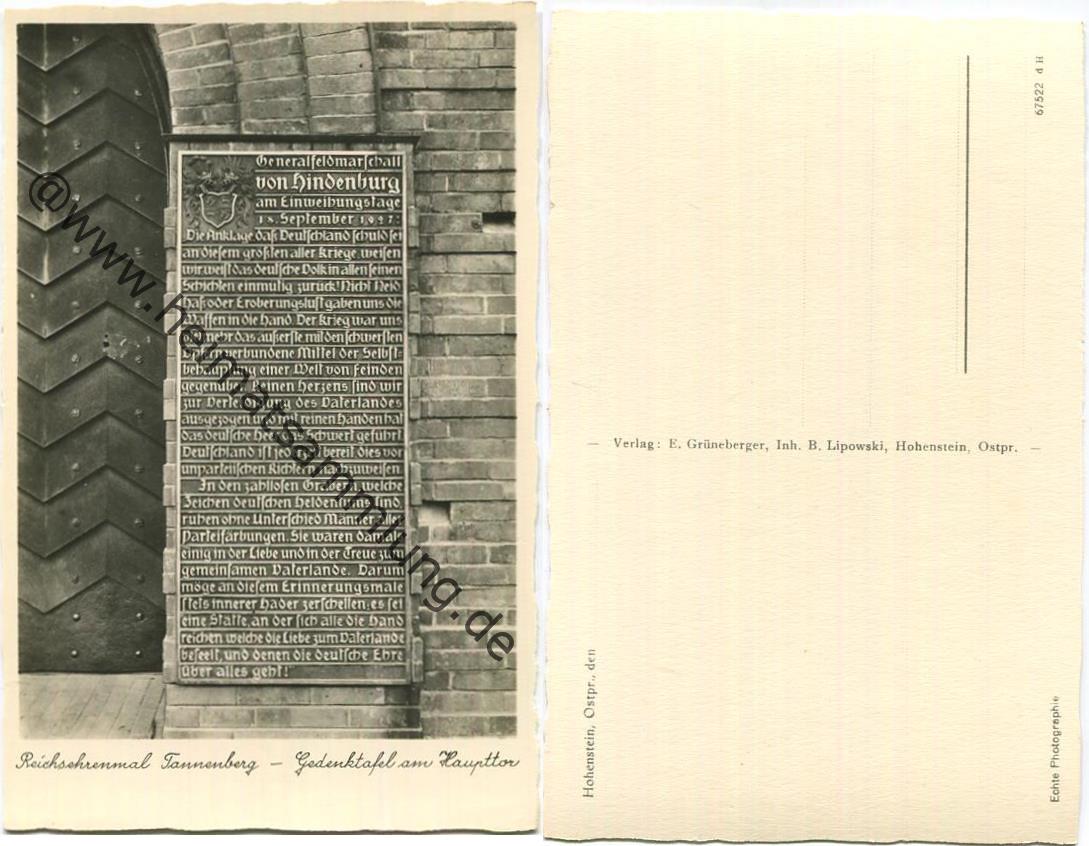 Generalfeldmarschall
von Hindenburg
am Einweihungstage
18. September 1927:
Die Anklage, daß Deutschland schuld sei
an diesem größten aller Kriege, weisen
wir, weist das deutsche Volk in allen seinen
Schichten einmütig zurück! Nicht Neid,
Haß oder Eroberungslust gaben uns die
Waffen in die Hand. Der Krieg war uns
das äußerste, mit den schwersten
verbundene Mittel der Selbst-
einer Welt von Feinden
gegenüber. Reinen Herzens sind wir
zur des Vaterlandes
ausgezogen und mit reinen Händen hat
das deutsche Heer das Schwert geführt.
Deutschland ist bereit, dies vor
unparteiischen Richtern
In den zahllosen Gräbern, welche
Zeichen deutschen Heldentums sind,
ruhen ohne Unterschied Männer aller
Parteifärbungen. Sie waren damals
einig in der Liebe und in der Treue zum
gemeinsamen Vaterlande. Darum
möge an diesem Erinnerungsmale
stets innerer Hader zerschellen; es sei
eine Stätte, an der sich alle die Hand
reichen, welche die Liebe zum Vaterlande
beseelt, und denen die deutsche Ehre
über alles geht!
Reichsehrenmal Tannenberg – Gedenktafel am Haupttor
@www.heimatsammlung.de
67522 d H
— Verlag: E. Grüneberger, Inh. B. Lipowski, Hohenstein, Ostpr. —
Hohenstein, Ostpr., den
Echte Photographie